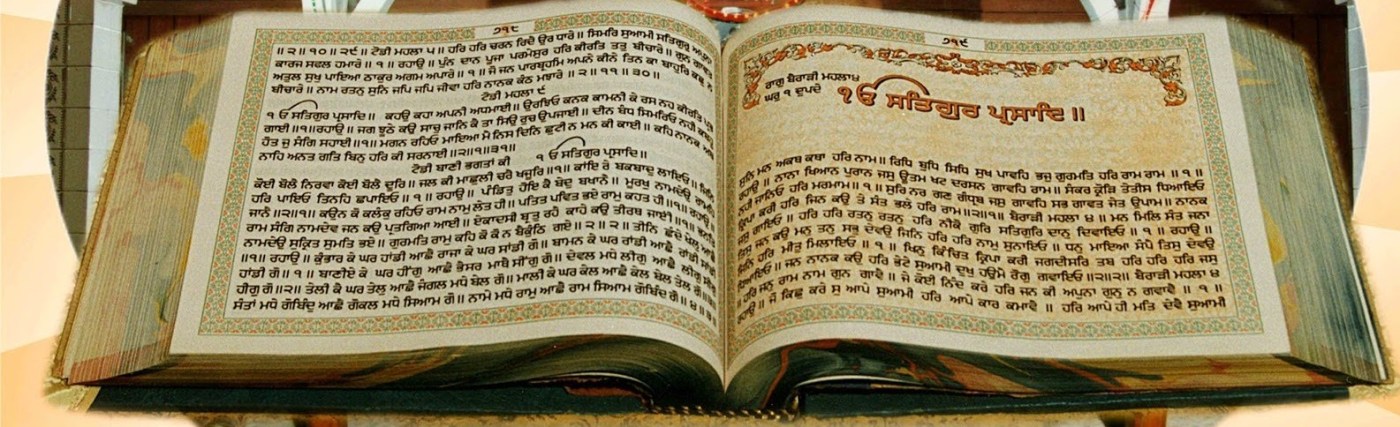 ੭੧੮
॥੨॥੧੦॥੨੯॥ ਟੋਡੀ ਮਹਲਾ ੫॥ ਹਰਿ ਹਰਿ ਚਰਨ ਰਿਦੈ ਉਰ ਧਾਰੇ॥ ਸਿਮਰਿ ਸੁਆਮੀ ਸਤਿਗੁਰੁ ਅਪੁਨਾ
ਕਾਰਜ ਸਫਲ ਹਮਾਰੇ॥੧॥ ਰਹਾਉ॥ ਪੁੰਨ ਦਾਨ ਪੂਜਾ ਪਰਮੇਸੁਰ ਹਰਿ ਕੀਰਤਿ ਤਤੁ ਬੀਚਾਰੇ॥ ਗੁਨ ਗਾਵਤ
ਅਤੁਲ ਸੁਖੁ ਪਾਇਆ ਠਾਕੁਰ ਅਗਮ ਅਪਾਰੇ॥੧॥ ਜੋ ਜਨ ਪਾਰਬ੍ਰਹਮਿ ਅਪਨੇ ਕੀਨੇ ਤਿਨ ਕਾ ਬਾਹੁਰਿ ਕਛੁ ਨ
ਬੀਚਾਰੇ॥ ਨਾਮ ਰਤਨੁ ਸੁਨਿ ਜਪਿ ਜਪਿ ਜੀਵਾ ਹਰਿ ਨਾਨਕ ਕੰਠ ਮਝਾਰੇ॥੨॥੧੧॥੩੦॥
ਟੋਡੀ ਮਹਲਾ ੯
੧ਓ ਸਤਿਗੁਰ ਪ੍ਰਸਾਦਿ॥ ਕਹਉ ਕਹਾ ਅਪਨੀ ਅਧਮਾਈ॥ ਉਰਝਿਓ ਕਨਕ ਕਾਮਨੀ ਕੇ ਰਸ ਨਹ ਕੀਰਤਿ ਪ੍ਰਭ
ਗਾਈ॥੧॥ਰਹਾਉ॥ ਜਗ ਝੂਠੇ ਕਉ ਸਾਚੁ ਜਾਨਿ ਕੈ ਤਾ ਸਿਉ ਰੁਚ ਉਪਜਾਈ॥ ਦੀਨ ਬੰਧ ਸਿਮਰਿਓ ਨਹੀ ਕਬਹੂ
ਹੋਤ ਜੁ ਸੰਗਿ ਸਹਾਈ॥੧॥ ਮਗਨ ਰਹਿਓ ਮਾਇਆ ਮੈ ਨਿਸ ਦਿਨਿ ਛੁਟੀ ਨ ਮਨ ਕੀ ਕਾਈ॥ ਕਹਿ ਨਾਨਕ ਅਬ
ਨਾਹਿ ਅਨਤ ਗਤਿ ਬਿਨੁ ਹਰਿ ਕੀ ਸਰਨਾਈ॥੨॥੧॥੩੧॥
ਟੋਡੀ ਬਾਣੀ ਭਗਤਾਂ ਕੀ ੧ਓ ਸਤਿਗੁਰ ਪ੍ਰਸਾਦਿ॥
ਕੋਈ ਬੋਲੈ ਨਿਰਵਾ ਕੋਈ ਬੋਲੈ ਦੂਰਿ॥ ਜਲ ਕੀ ਮਾਛੁਲੀ ਚਰੈ ਖਜੂਰਿ॥੧॥ ਕਾਂਇ ਰੇ ਬਕਬਾਦੁ ਲਾਇਓ॥ ਜਿਨਿ
ਹਰਿ ਪਾਇਓ ਤਿਨਹਿ ਛਪਾਇਓ॥੧॥ ਰਹਾਉ॥ ਪੰਡਿਤੁ ਹੋਇ ਕੈ ਬੇਦੁ ਬਖਾਨੈ॥ ਮੂਰਖੁ ਨਾਮਦੇਉ ਰਾਮਹਿ
ਜਾਨੈ॥੨॥੧॥ ਕਉਨ ਕੋ ਕਲੰਕੁ ਰਹਿਓ ਰਾਮ ਨਾਮੁ ਲੇਤ ਹੀ॥ ਪਤਿਤ ਪਵਿਤ ਭਏ ਰਾਮੁ ਕਹਤ ਹੀ॥੧॥ ਰਹਾਉ॥
ਰਾਮ ਸੰਗਿ ਨਾਮਦੇਵ ਜਨ ਕਉ ਪ੍ਰਤਗਿਆ ਆਈ॥ ਏਕਾਦਸੀ ਬ੍ਰਤੁ ਰਹੈ ਕਾਹੇ ਕਉ ਤੀਰਥ ਜਾਈ॥੧॥ ਭਨਤਿ
ਨਾਮਦੇਉ ਸੁਕ੍ਰਿਤ ਸੁਮਤਿ ਭਏ॥ ਗੁਰਮਤਿ ਰਾਮੁ ਕਹਿ ਕੋ ਕੋ ਨ ਬੈਕੁੰਠਿ ਗਏ॥੨॥੨॥ ਤੀਨਿ ਛੰਦੇ ਖੇਲੁ ਆਛੈ
॥੧॥ ਰਹਾਉ॥ ਕੁੰਭਾਰ ਕੇ ਘਰ ਹਾਂਡੀ ਆਛੈ ਰਾਜਾ ਕੇ ਘਰ ਸਾਂਡੀ ਗੋ॥ ਬਾਮਨ ਕੇ ਘਰ ਰਾਂਡੀ ਆਛੈ ਰਾਂਡੀ ਸਾਂਡੀ
ਹਾਂਡੀ ਗੋ॥੧॥ ਬਾਣੀਏ ਕੇ ਘਰ ਹੀਂਗੁ ਆਛੈ ਭੈਸਰ ਮਾਥੈ ਸੀਂਗੁ ਗੋ॥ ਦੇਵਲ ਮਧੇ ਲੀਗੁ ਆਛੈ ਲੀਗੁ ਸੀਗੁ
ਹੀਗੁ ਗੋ॥੨॥ ਤੇਲੀ ਕੈ ਘਰ ਤੇਲੁ ਆਛੈ ਜੰਗਲ ਮਧੇ ਬੇਲ ਗੋ॥ ਮਾਲੀ ਕੇ ਘਰ ਕੇਲ ਆਛੈ ਕੇਲ ਬੇਲ ਤੇਲ ਗੋ॥੩॥
ਸੰਤਾਂ ਮਧੇ ਗੋਬਿੰਦੁ ਆਛੈ ਗੋਕਲ ਮਧੇ ਸਿਆਮ ਗੋ॥ ਨਾਮੇ ਮਧੇ ਰਾਮੁ ਆਛੈ ਰਾਮ ਸਿਆਮ ਗੋਬਿੰਦ ਗੋ॥੪॥੩॥
੭੧੯
ਰਾਗੁ ਬੈਰਾੜੀ ਮਹਲਾ ੪
ਘਰੁ ੧ ਦੁਪਦੇ
੧ਓ ਸਤਿਗੁਰ ਪ੍ਰਸਾਦਿ॥
ਸੁਨਿ ਮਨ ਅਕਥ ਕਥਾ ਹਰਿ ਨਾਮ॥ ਰਿਧਿ ਬੁਧਿ ਸਿਧਿ ਸੁਖ ਪਾਵਹਿ ਭਜੁ ਗੁਰਮਤਿ ਹਰਿ ਰਾਮ ਰਾਮ॥੧॥
ਰਹਾਉ॥ ਨਾਨਾ ਖਿਆਨ ਪੁਰਾਨ ਜਸੁ ਊਤਮ ਖਟ ਦਰਸਨ ਗਾਵਹਿ ਰਾਮ॥ ਸੰਕਰ ਕ੍ਰੋੜਿ ਤੇਤੀਸ ਧਿਆਇਓ
ਨਹੀ ਜਾਨਿਓ ਹਰਿ ਮਰਮਾਮ॥੧॥ ਸੁਰਿ ਨਰ ਗਣ ਗੰਧ੍ਰਬ ਜਸੁ ਗਾਵਹਿ ਸਭ ਗਾਵਤ ਜੇਤ ਉਪਾਮ॥ ਨਾਨਕ
ਕ੍ਰਿਪਾ ਕਰੀ ਹਰਿ ਜਿਨ ਕਉ ਤੇ ਸੰਤ ਭਲੇ ਹਰਿ ਰਾਮ॥੨॥੧॥ ਬੈਰਾੜੀ ਮਹਲਾ ੪॥ ਮਨ ਮਿਲਿ ਸੰਤ ਜਨਾ
ਜਸੁ ਗਾਇਓ॥ ਹਰਿ ਹਰਿ ਰਤਨੁ ਰਤਨੁ ਹਰਿ ਨੀਕੋ ਗੁਰਿ ਸਤਿਗੁਰਿ ਦਾਨੁ ਦਿਵਾਇਓ॥੧॥ ਰਹਾਉ॥
ਤਿਸੁ ਜਨ ਕਉ ਮਨੁ ਤਨੁ ਸਭੁ ਦੇਵਉ ਜਿਨਿ ਹਰਿ ਹਰਿ ਨਾਮੁ ਸੁਨਾਇਓ॥ ਧਨੁ ਮਾਇਆ ਸੰਪੈ ਤਿਸੁ ਦੇਵਉ
ਜਿਨਿ ਹਰਿ ਮੀਤੁ ਮਿਲਾਇਓ॥੧॥ ਖਿਨੁ ਕਿੰਚਿਤ ਕ੍ਰਿਪਾ ਕਰੀ ਜਗਦੀਸਰਿ ਤਬ ਹਰਿ ਹਰਿ ਹਰਿ ਜਸੁ
ਧਿਆਇਓ॥ ਜਨ ਨਾਨਕ ਕਉ ਹਰਿ ਭੇਟੇ ਸੁਆਮੀ ਦੁਖੁ ਹਉਮੈ ਰੋਗੁ ਗਵਾਇਓ॥੨॥੨॥ ਬੈਰਾੜੀ ਮਹਲਾ ੪
॥ ਹਰਿ ਜਨੁ ਰਾਮ ਨਾਮ ਗੁਨ ਗਾਵੈ॥ ਜੇ ਕੋਈ ਨਿੰਦ ਕਰੇ ਹਰਿ ਜਨ ਕੀ ਅਪੁਨਾ ਗੁਨੁ ਨ ਗਵਾਵੈ॥੧॥
ਰਹਾਉ॥ ਜੋ ਕਿਛੁ ਕਰੇ ਸੁ ਆਪੇ ਸੁਆਮੀ ਹਰਿ ਆਪੇ ਕਾਰ ਕਮਾਵੈ॥ ਹਰਿ ਆਪੇ ਹੀ ਮਤਿ ਦੇਵੈ ਸੁਆਮੀ